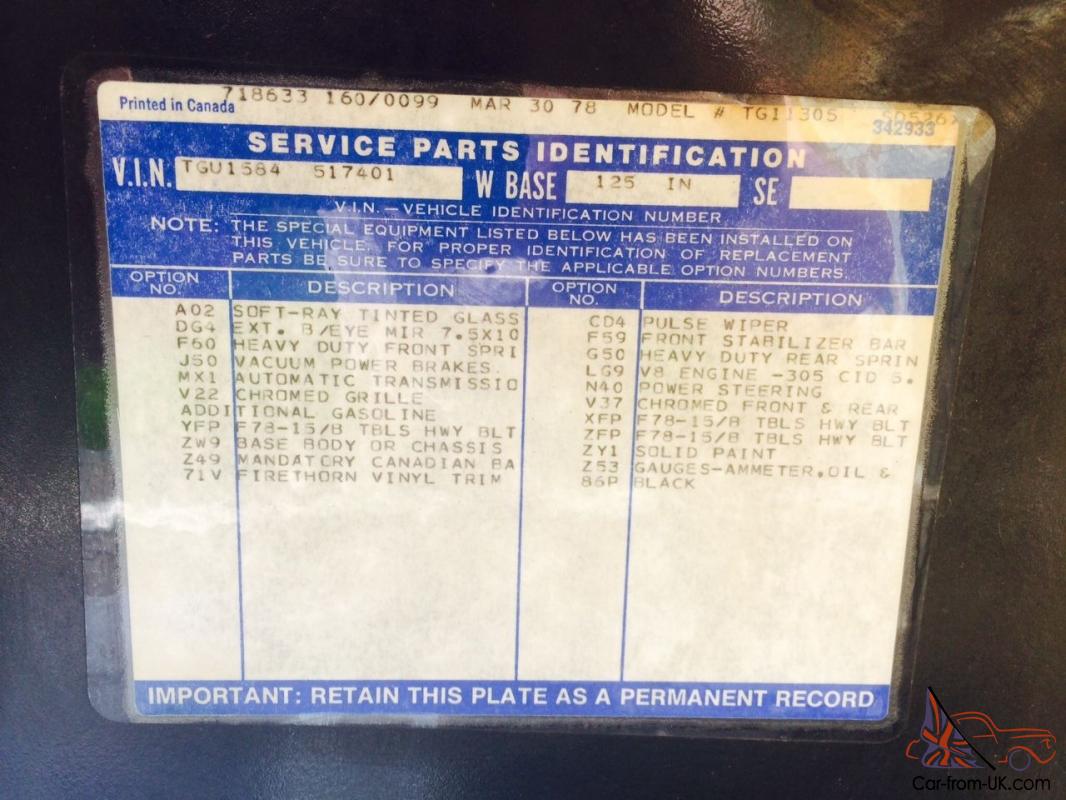 718633 160/0099 MAR 30 78 MODEL # TG11305
Printed in Canada 342933
SERVICE PARTS IDENTIFICATION
V.I.N. TGU1584 517401 W BASE 125 IN SE
V.I.N. – VEHICLE IDENTIFICATION NUMBER
NOTE: THE SPECIAL EQUIPMENT LISTED BELOW HAS BEEN INSTALLED ON
THIS VEHICLE. FOR PROPER IDENTIFICATION OF REPLACEMENT
PARTS BE SURE TO SPECIFY THE APPLICABLE OPTION NUMBERS.
OPTION NO. DESCRIPTION
A02 SOFT-RAY TINTED GLASS
DG4 EXT. B/EYE MIR 7.5X10
F60 HEAVY DUTY FRONT SPRI
J50 VACUUM POWER BRAKES.
MX1 AUTOMATIC TRANSMISSIO
V22 CHROMED GRILLE
ADDITIONAL GASOLINE
YFP F78-15/B TBLS HWY BLT
ZW9 BASE BODY OR CHASSIS
Z49 MANDATORY CANADIAN BA
71V FIRETHORN VINYL TRIM
OPTION NO. DESCRIPTION
CD4 PULSE WIPER
F59 FRONT STABILIZER BAR
G50 HEAVY DUTY REAR SPRIN
LG9 V8 ENGINE -305 CID 5.
N40 POWER STEERING
V37 CHROMED FRONT & REAR
XFP F78-15/B TBLS HWY BLT
ZFP F78-15/B TBLS HWY BLT
ZY1 SOLID PAINT
Z53 GAUGES-AMMETER.OIL &
86P BLACK
IMPORTANT: RETAIN THIS PLATE AS A PERMANENT RECORD
Car-from-UK.com